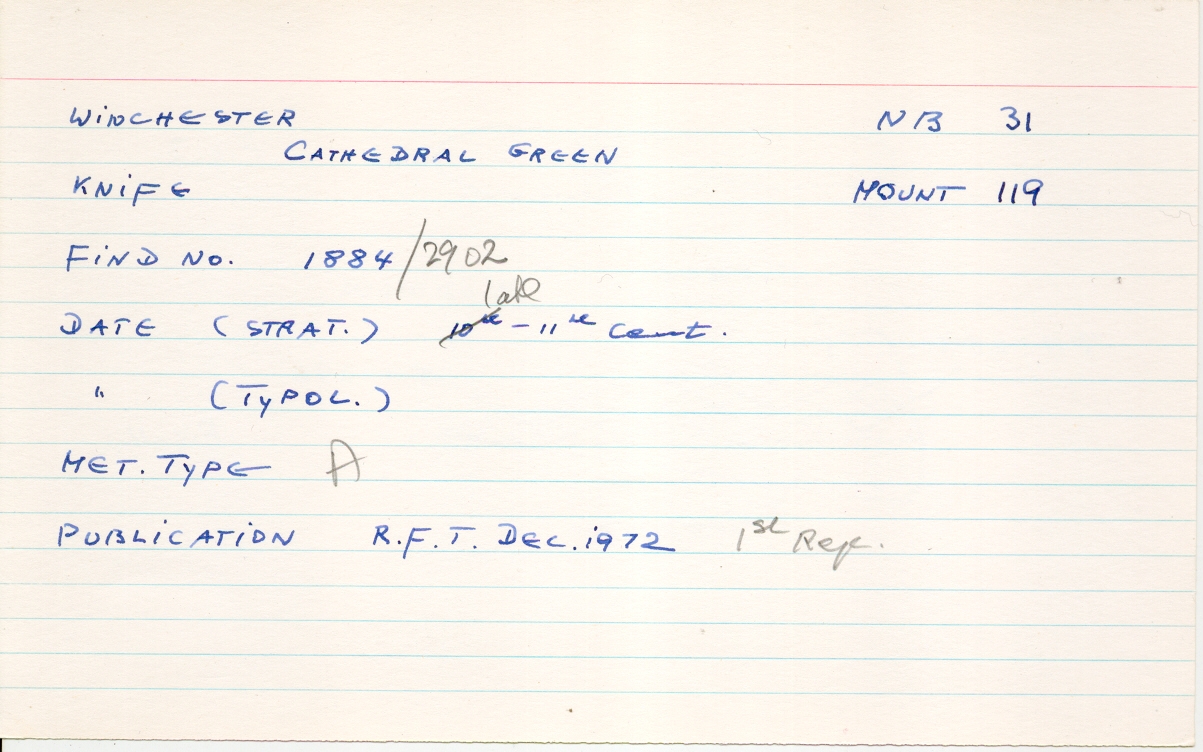 WINCHESTER NB 31
CATHEDRAL GREEN
KNIFE MOUNT 119
FIND NO. 1884/2902
late
DATE (STRAT.) 10th - 11th Cent.
" (TYPOL.)
MET. TYPE A
PUBLICATION R.F.T. DEC. 1972 1st Rep.